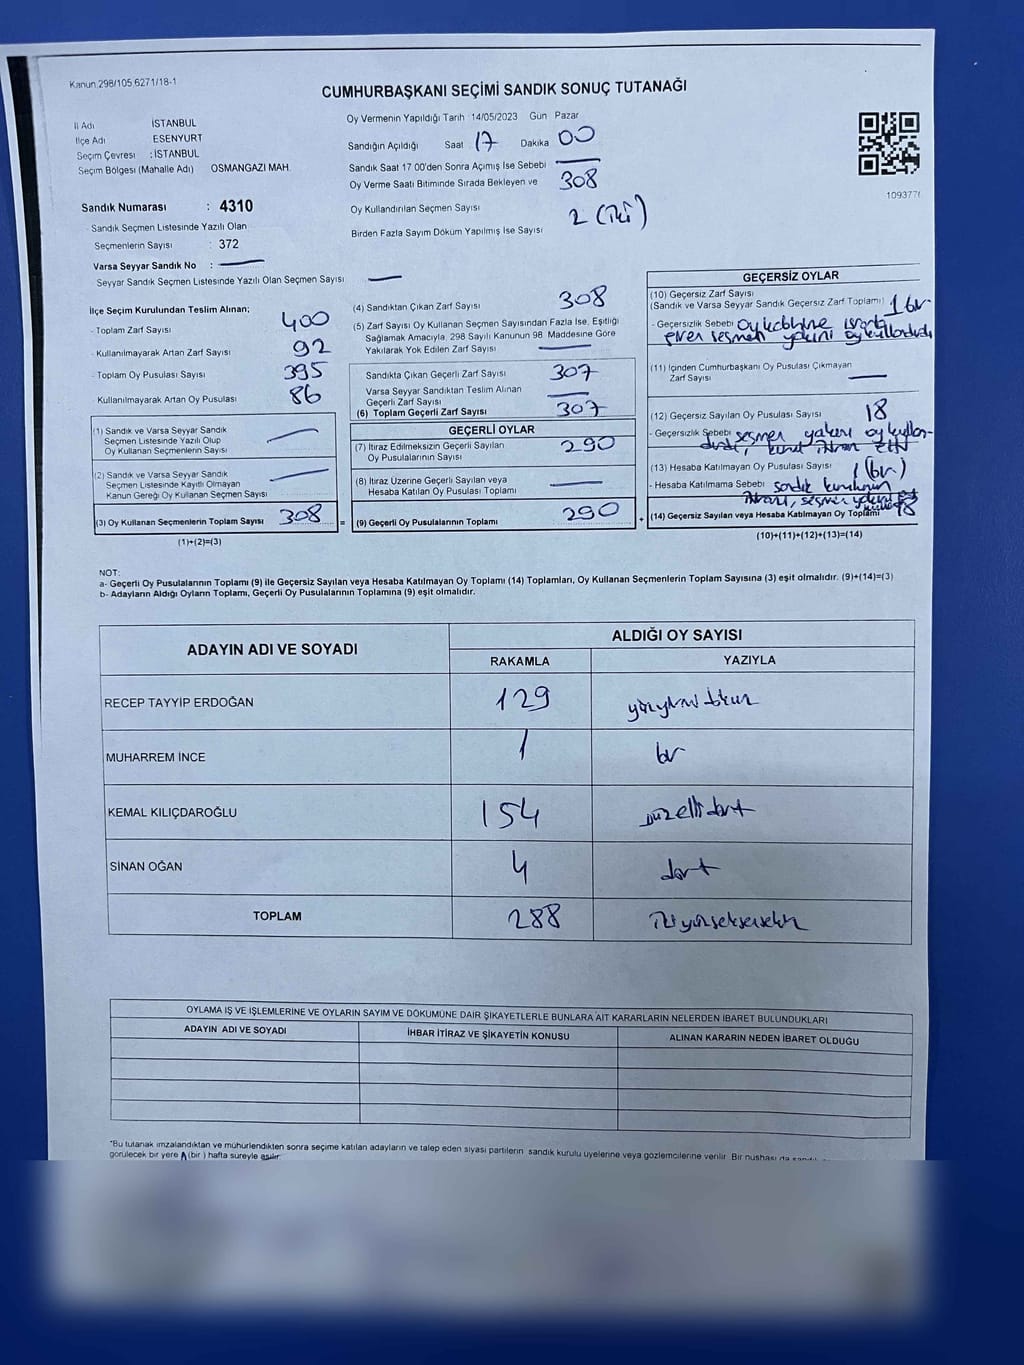 Kanun 298/105 6271/18-1
CUMHURBAŞKANI SEÇİMİ SANDIK SONUÇ TUTANAĞI
İl Adı İSTANBUL
İlçe Adı ESENYURT
Seçim Çevresi : İSTANBUL
Seçim Bölgesi (Mahalle Adı) OSMANGAZİ MAH.
Sandık Numarası : 4310
- Sandık Seçmen Listesinde Yazılı Olan
Seçmenlerin Sayısı : 372
Varsa Seyyar Sandık No :
Seyyar Sandık Seçmen Listesinde Yazılı Olan Seçmen Sayısı
Oy Vermenin Yapıldığı Tarih 14/05/2023 Gün Pazar
Sandığın Açıldığı Saat 17 Dakika 00
Sandık Saat 17 00'den Sonra Açılmış İse Sebebi
Oy Verme Saati Bitiminde Sırada Bekleyen ve 308
Oy Kullandırılan Seçmen Sayısı
Birden Fazla Sayım Döküm Yapılmış İse Sayısı 2 (iki)
1093776
İlçe Seçim Kurulundan Teslim Alınan;
- Toplam Zarf Sayısı 400
- Kullanılmayarak Artan Zarf Sayısı 92
- Toplam Oy Pusulası Sayısı 395
- Kullanılmayarak Artan Oy Pusulası 86
(1) Sandık ve Varsa Seyyar Sandık
Seçmen Listesinde Yazılı Olup
Oy Kullanan Seçmenlerin Sayısı
(2) Sandık ve Varsa Seyyar Sandık
Seçmen Listesinde Kayıtlı Olmayan
Kanun Gereği Oy Kullanan Seçmen Sayısı
(3) Oy Kullanan Seçmenlerin Toplam Sayısı 308 =
(1)+(2)=(3)
(4) Sandıktan Çıkan Zarf Sayısı 308
(5) Zarf Sayısı Oy Kullanan Seçmen Sayısından Fazla İse, Eşitliği
Sağlamak Amacıyla, 298 Sayılı Kanunun 98. Maddesine Göre
Yakılarak Yok Edilen Zarf Sayısı
Sandıkta Çıkan Geçerli Zarf Sayısı 307
Varsa Seyyar Sandıktan Teslim Alınan
Geçerli Zarf Sayısı
(6) Toplam Geçerli Zarf Sayısı 307
GEÇERLİ OYLAR
(7) İtiraz Edilmeksizin Geçerli Sayılan 290
Oy Pusulalarının Sayısı
(8) İtiraz Üzerine Geçerli Sayılan veya
Hesaba Katılan Oy Pusulası Toplamı
(9) Geçerli Oy Pusulalarının Toplamı 290 +
GEÇERSİZ OYLAR
(10) Geçersiz Zarf Sayısı
(Sandık ve Varsa Seyyar Sandık Geçersiz Zarf Toplamı) 1 bir
- Geçersizlik Sebebi oy kabinine ısrarla
giren seçmen yakını oy kullandırdı
(11) İçinden Cumhurbaşkanı Oy Pusulası Çıkmayan
Zarf Sayısı
(12) Geçersiz Sayılan Oy Pusulası Sayısı 18
- Geçersizlik Sebebi seçmen yakını oy kullan-
(13) Hesaba Katılmayan Oy Pusulası Sayısı 1 (bir)
- Hesaba Katılmama Sebebi sandık kurulunun
itirazı, seçmen yakını
(14) Geçersiz Sayılan veya Hesaba Katılmayan Oy Toplamı 18
(10)+(11)+(12)+(13)=(14)
NOT:
a- Geçerli Oy Pusulalarının Toplamı (9) ile Geçersiz Sayılan veya Hesaba Katılmayan Oy Toplamı (14) Toplamları, Oy Kullanan Seçmenlerin Toplam Sayısına (3) eşit olmalıdır. (9)+(14)=(3)
b- Adayların Aldığı Oyların Toplamı, Geçerli Oy Pusulalarının Toplamına (9) eşit olmalıdır.
ADAYIN ADI VE SOYADI ALDIĞI OY SAYISI
RAKAMLA YAZIYLA
RECEP TAYYİP ERDOĞAN 129 yüzyirmi dokuz
MUHARREM İNCE 1 bir
KEMAL KILIÇDAROĞLU 154 yüzelli dört
SİNAN OĞAN 4 dört
TOPLAM 288 ikiyüzseksensekiz
OYLAMA İŞ VE İŞLEMLERİNE VE OYLARIN SAYIM VE DÖKÜMÜNE DAİR ŞİKAYETLERLE BUNLARA AİT KARARLARIN NELERDEN İBARET BULUNDUKLARI
ADAYIN ADI VE SOYADI İHBAR İTİRAZ VE ŞİKAYETİN KONUSU ALINAN KARARIN NEDEN İBARET OLDUĞU
*Bu tutanak imzalandıktan ve mühürlendikten sonra seçime katılan adayların ve talep eden siyasi partilerin sandık kurulu üyelerine veya gözlemcilerine verilir. Bir nüshası da
görülecek bir yere 1 (bir) hafta süreyle asılır.